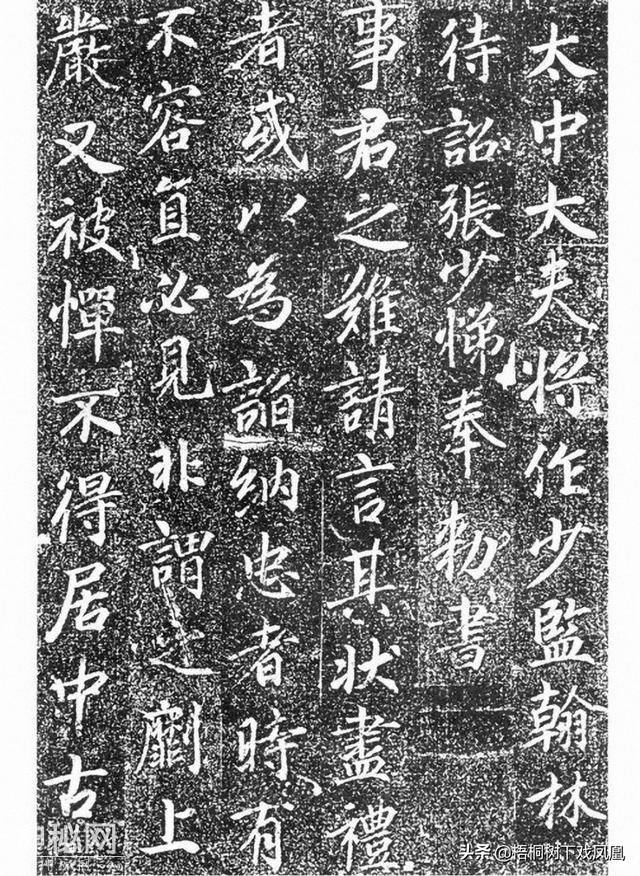 太中大夫將作少監翰林
待詔張少悌奉勅書
事君之難請言其狀盡禮
者或以為諂納忠者時有
不容直必見非謂之劘上
嚴又被憚不得居中古
秘网
头条 @梧桐树下戏凤凰